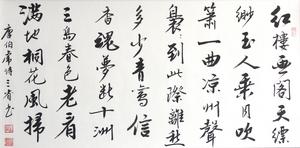 紅樓畫閣天縹
緲玉人乘月吹
簫一曲凉州聲
裊到此際離愁
多少青鸞信
杳魂夢斷十洲
三島春色老看
滿地桐花風掃
唐伯虎詩